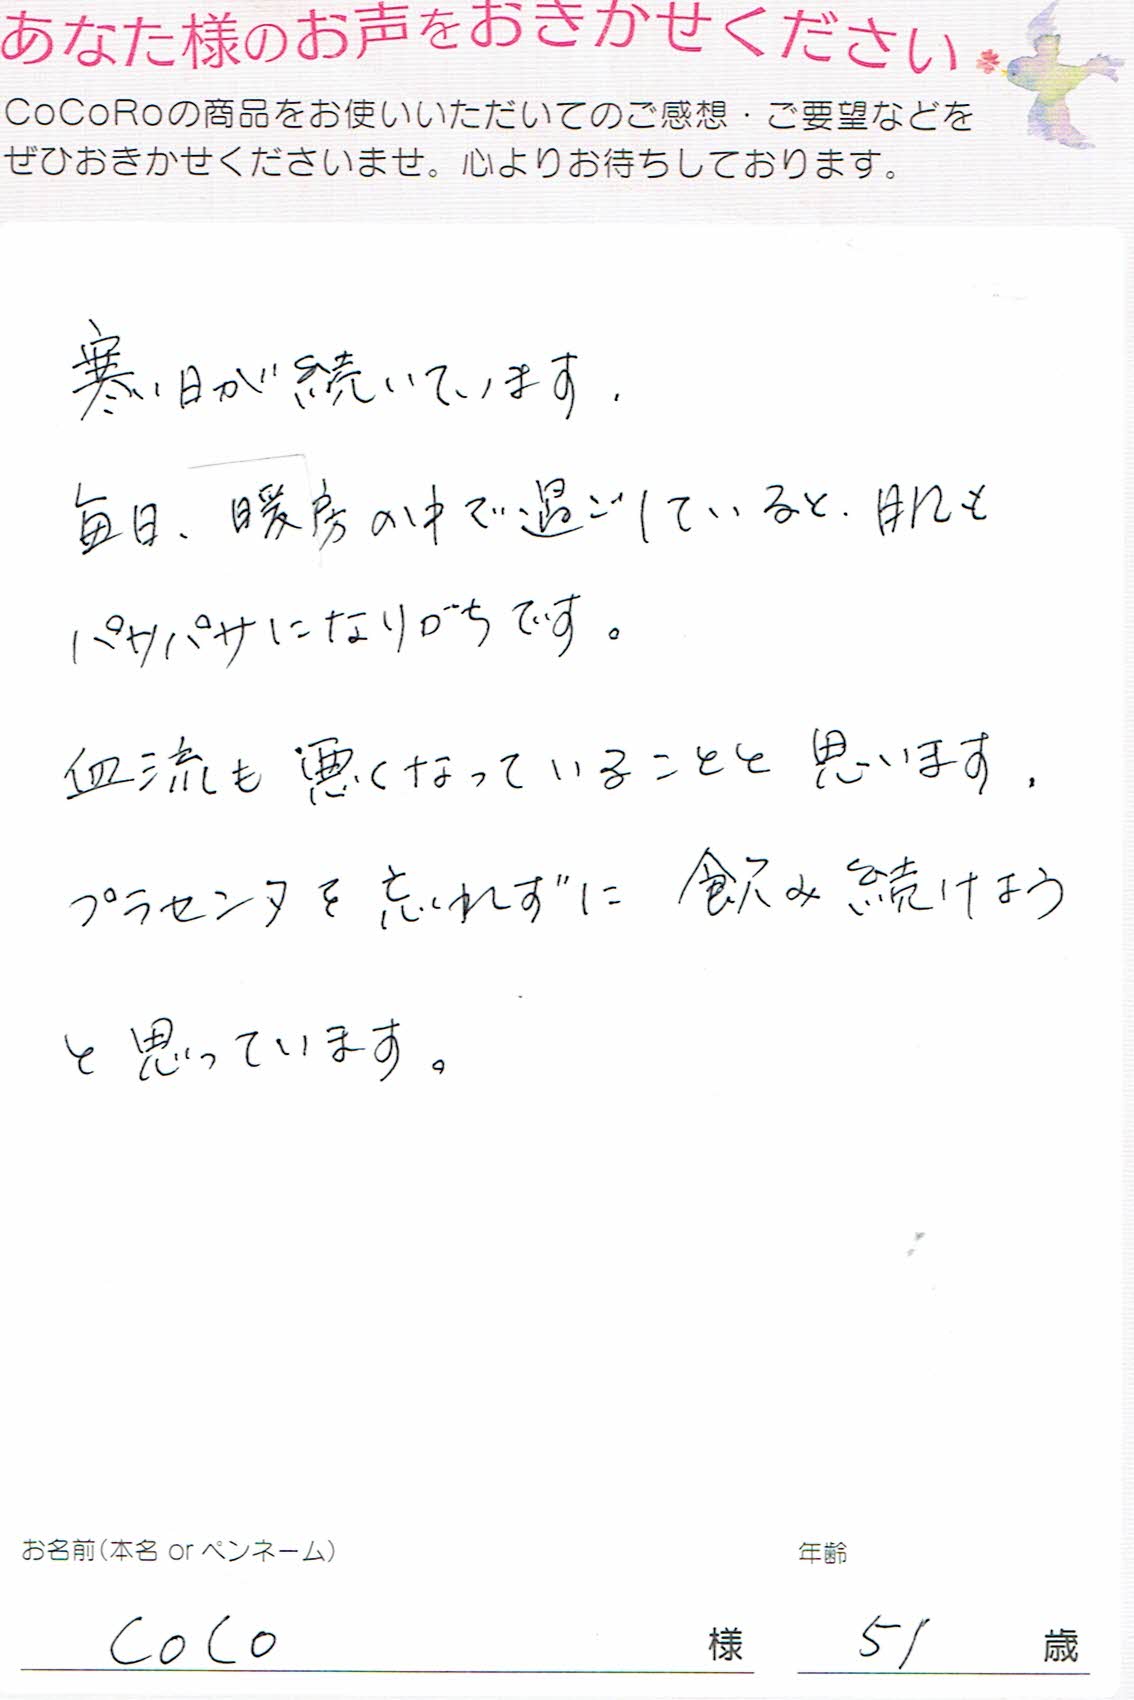 あなた様のお声をおきかせください
CoCoRoの商品をお使いいただいてのご感想・ご要望などを
ぜひおきかせくださいませ。心よりお待ちしております。
寒い日が続いています.
毎日、暖房の中で過ごしていると、肌も
パサパサになりがちです。
血流も悪くなっていることと思います.
プラセンタを忘れずに飲み続けよう
と思っています。
お名前(本名 or ペンネーム)
年齢
CoCo 様
51 歳